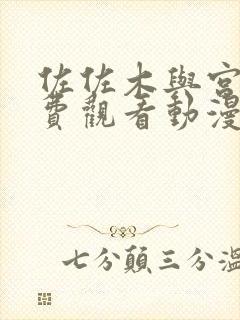 佐佐木與宮
費觀看動漫
七分顛三分溫